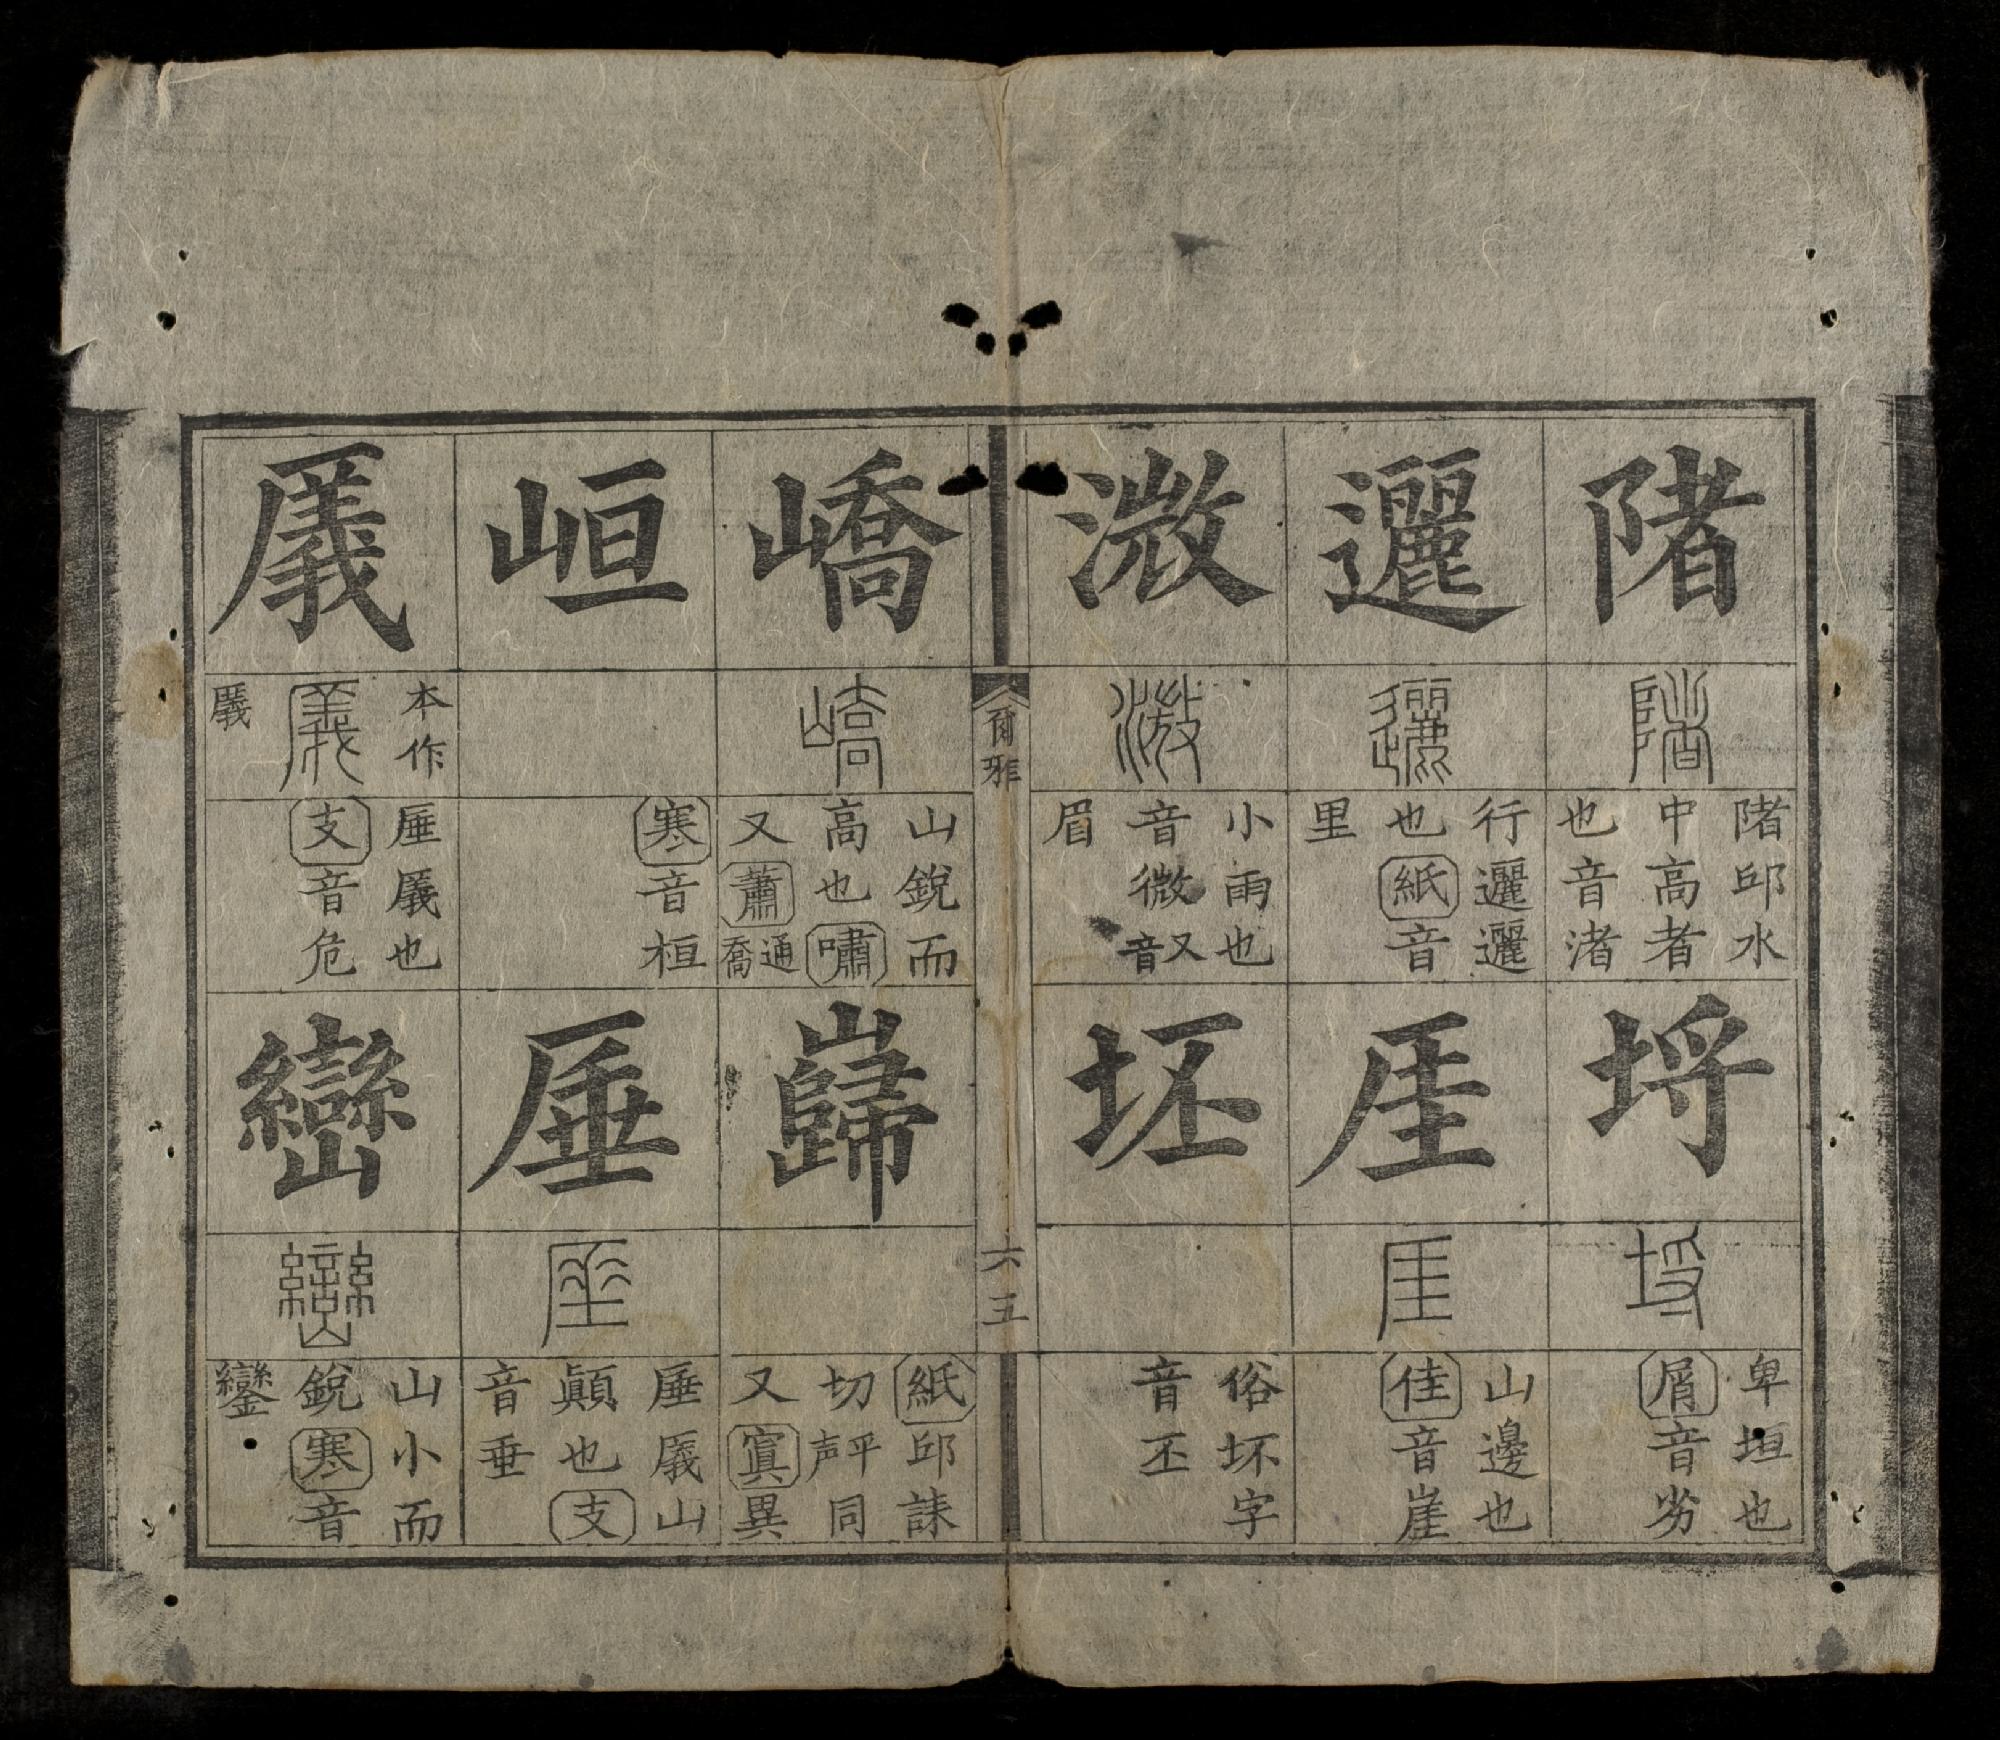 陼
陼邱水
中高者
也音渚
埒
卑垣也
屑音劣
邐
行邐邐
也紙音
里
厓
山邊也
佳音崖
溦
小雨也
音微又音
眉
坯
俗坏字
音丕
爾雅
六五
嶠
山銳而
高也嘯
又蕭通喬
巋
紙邱誄
切平声同
又寘異
峘
寒音桓
厜
厜㕒山
顚也支
音垂
㕒
本作
㕒
厜㕒也
支音危
巒
山小而
銳寒音
鑾